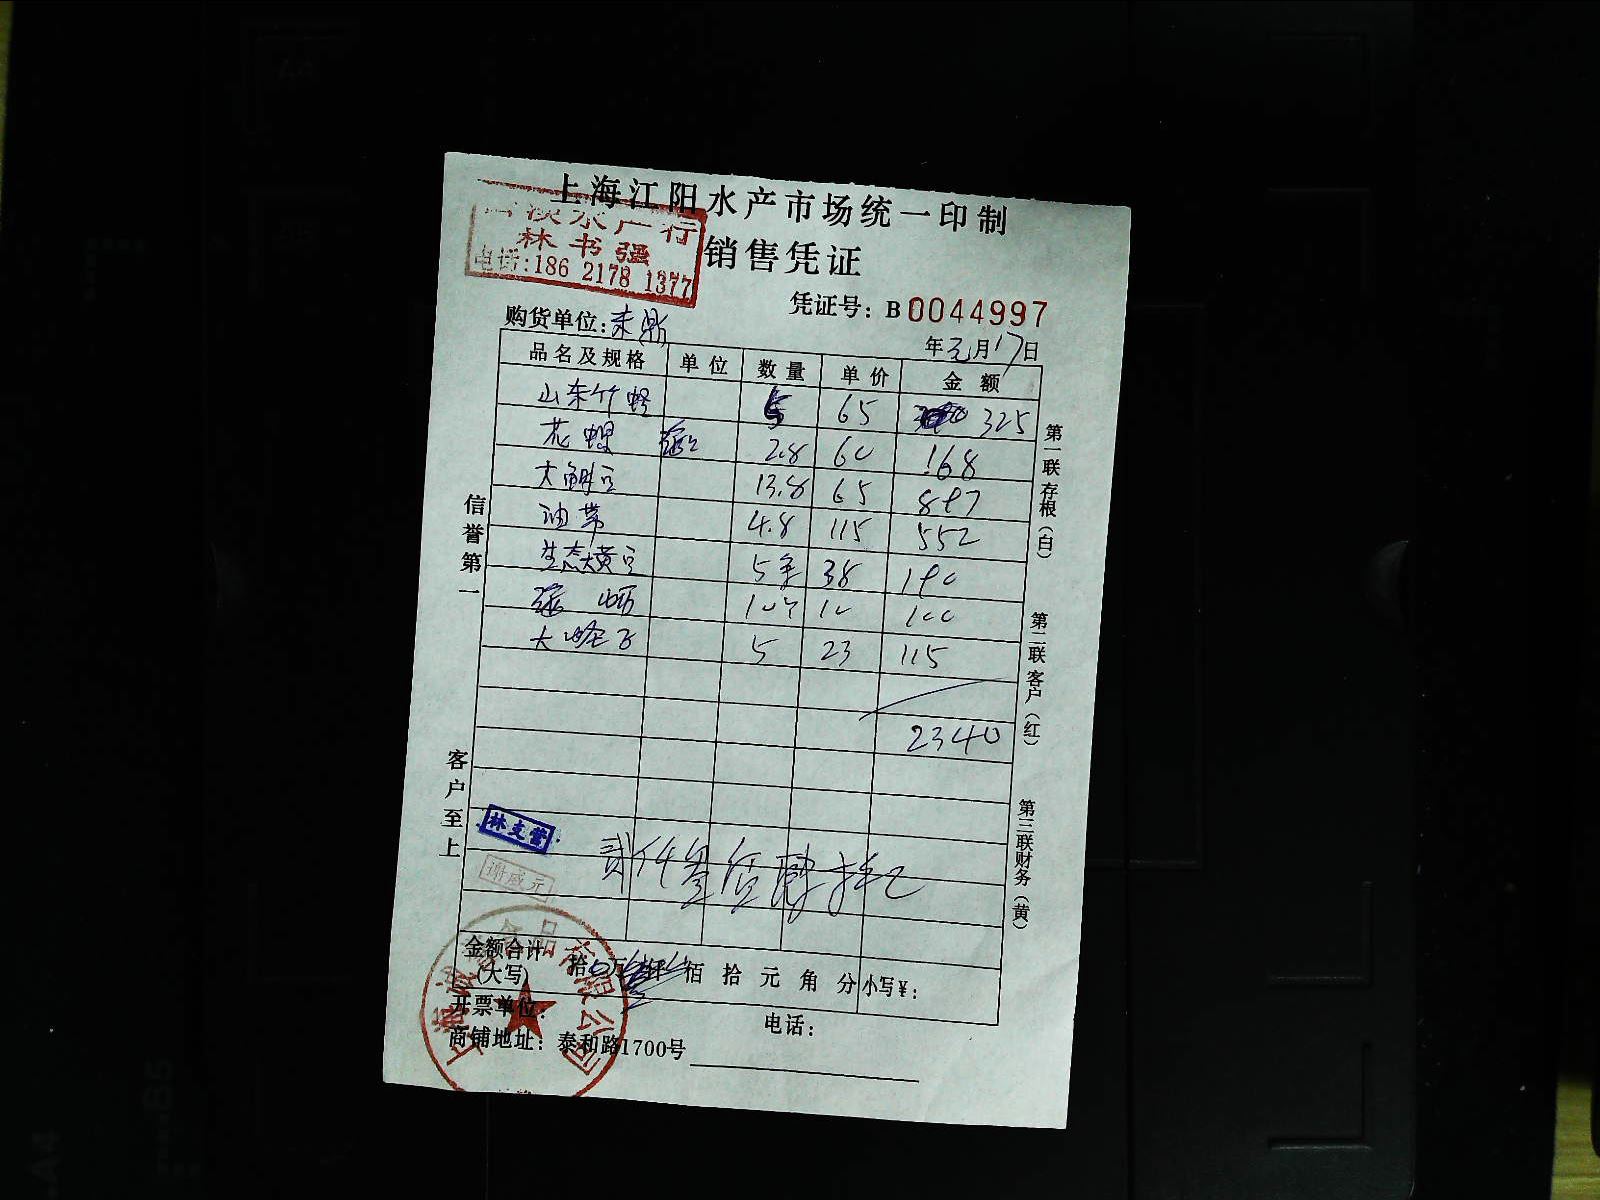 上海江阳水产市场统一印制
水产行
林书强
电话:186 2178 1377
销售凭证
凭证号: B0044997
购货单位:
年元月17日
品名及规格 单位 数量 单价 金额
山东竹蛏 5 65 325
花螺 2.8 60 168
大鲷 13.8 65 897
油带 4.8 115 552
生态大黄 5条 38 190
10 10 100
大 5 23 115
2340
贰仟叁佰肆拾元
林支管
谢盛元
金额合计 拾 万 仟 佰 拾 元 角 分 小写¥:
(大写)
开票单位: 电话:
商铺地址: 泰和路1700号
上海 食品有限公司
信誉第一
客户至上
第一联存根(白)
第二联客户(红)
第三联财务(黄)